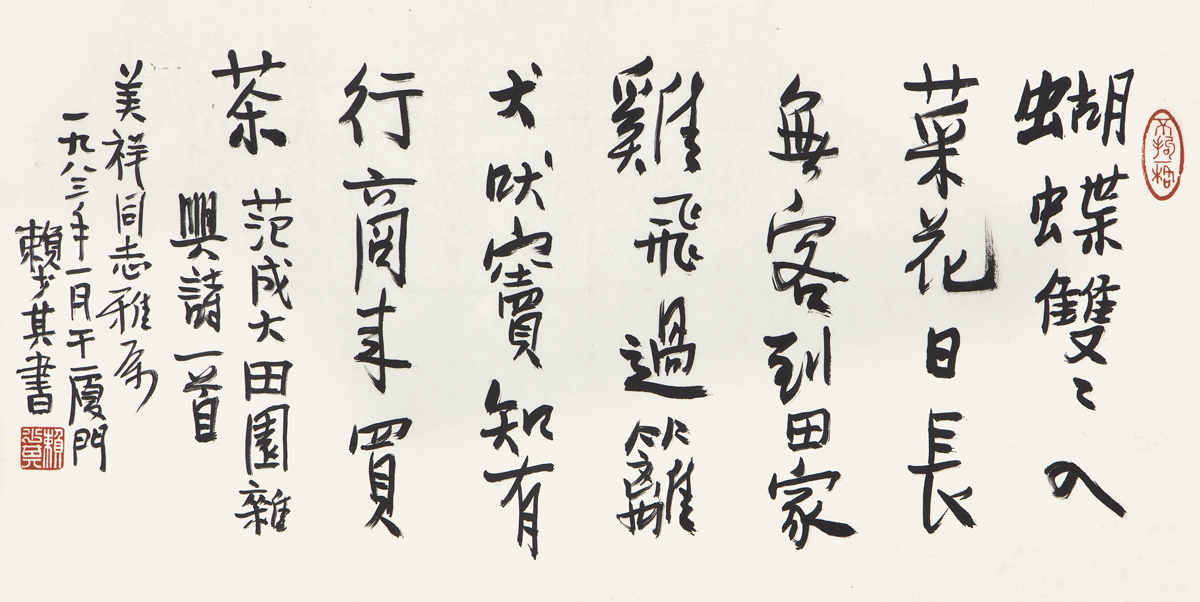 不拘一格
蝴蝶雙〻入
菜花日長
無客到田家
雞飛過籬
犬吠竇知有
行商来買
茶 范成大田園雜
興詩一首
美祥同志雅属
一九八三年一月于廈門
賴少其書